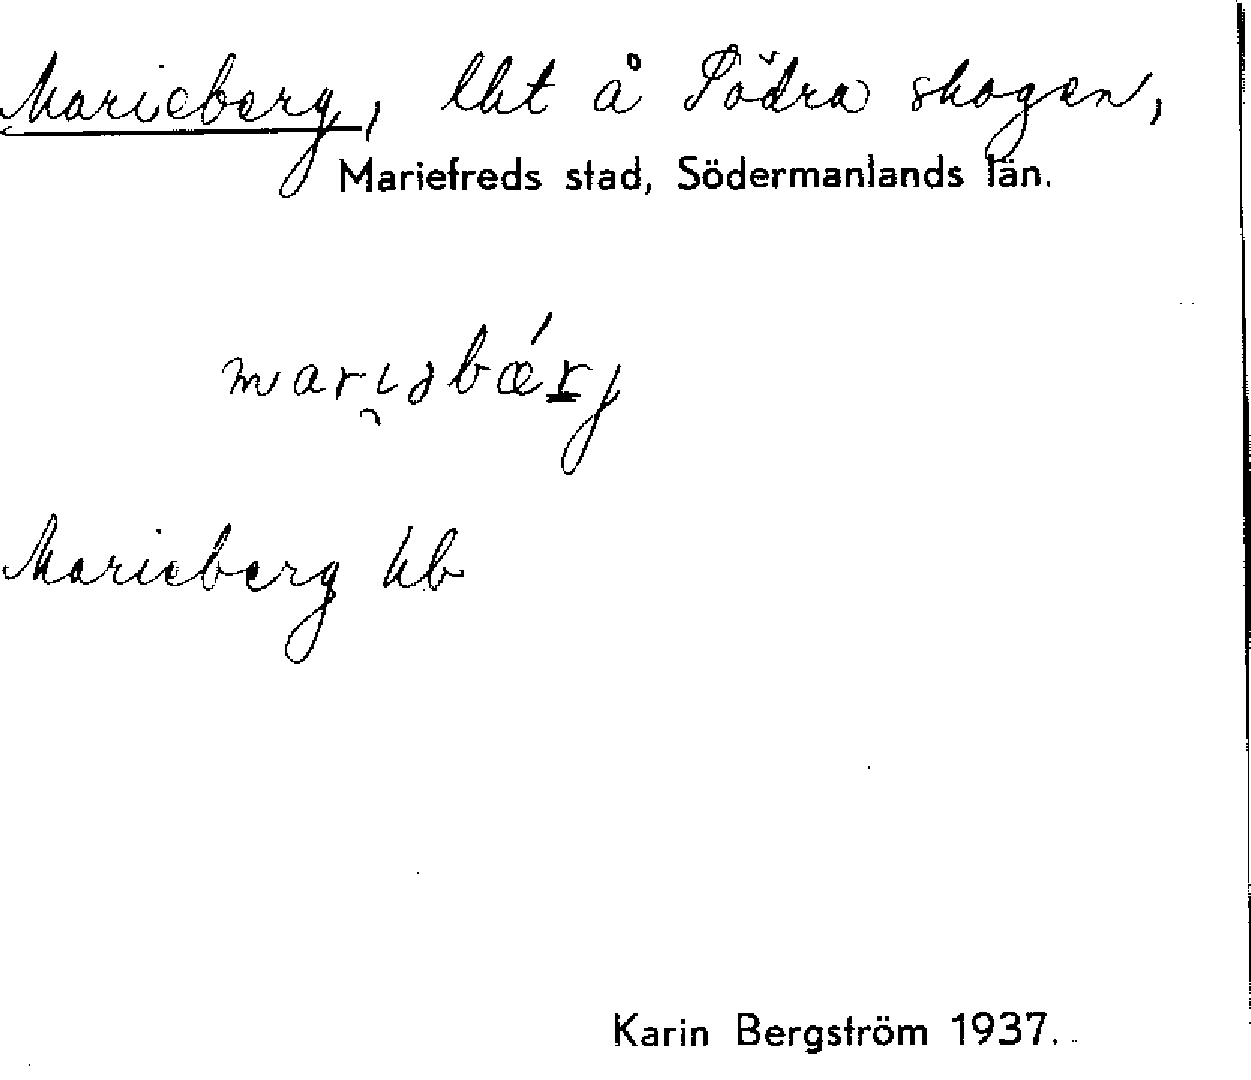 Marieberg, lht å Södra skogen,
Mariefreds stad, Södermanlands län.
marı̯əbǽr̲j
Marieberg hb
Karin Bergström 1937.